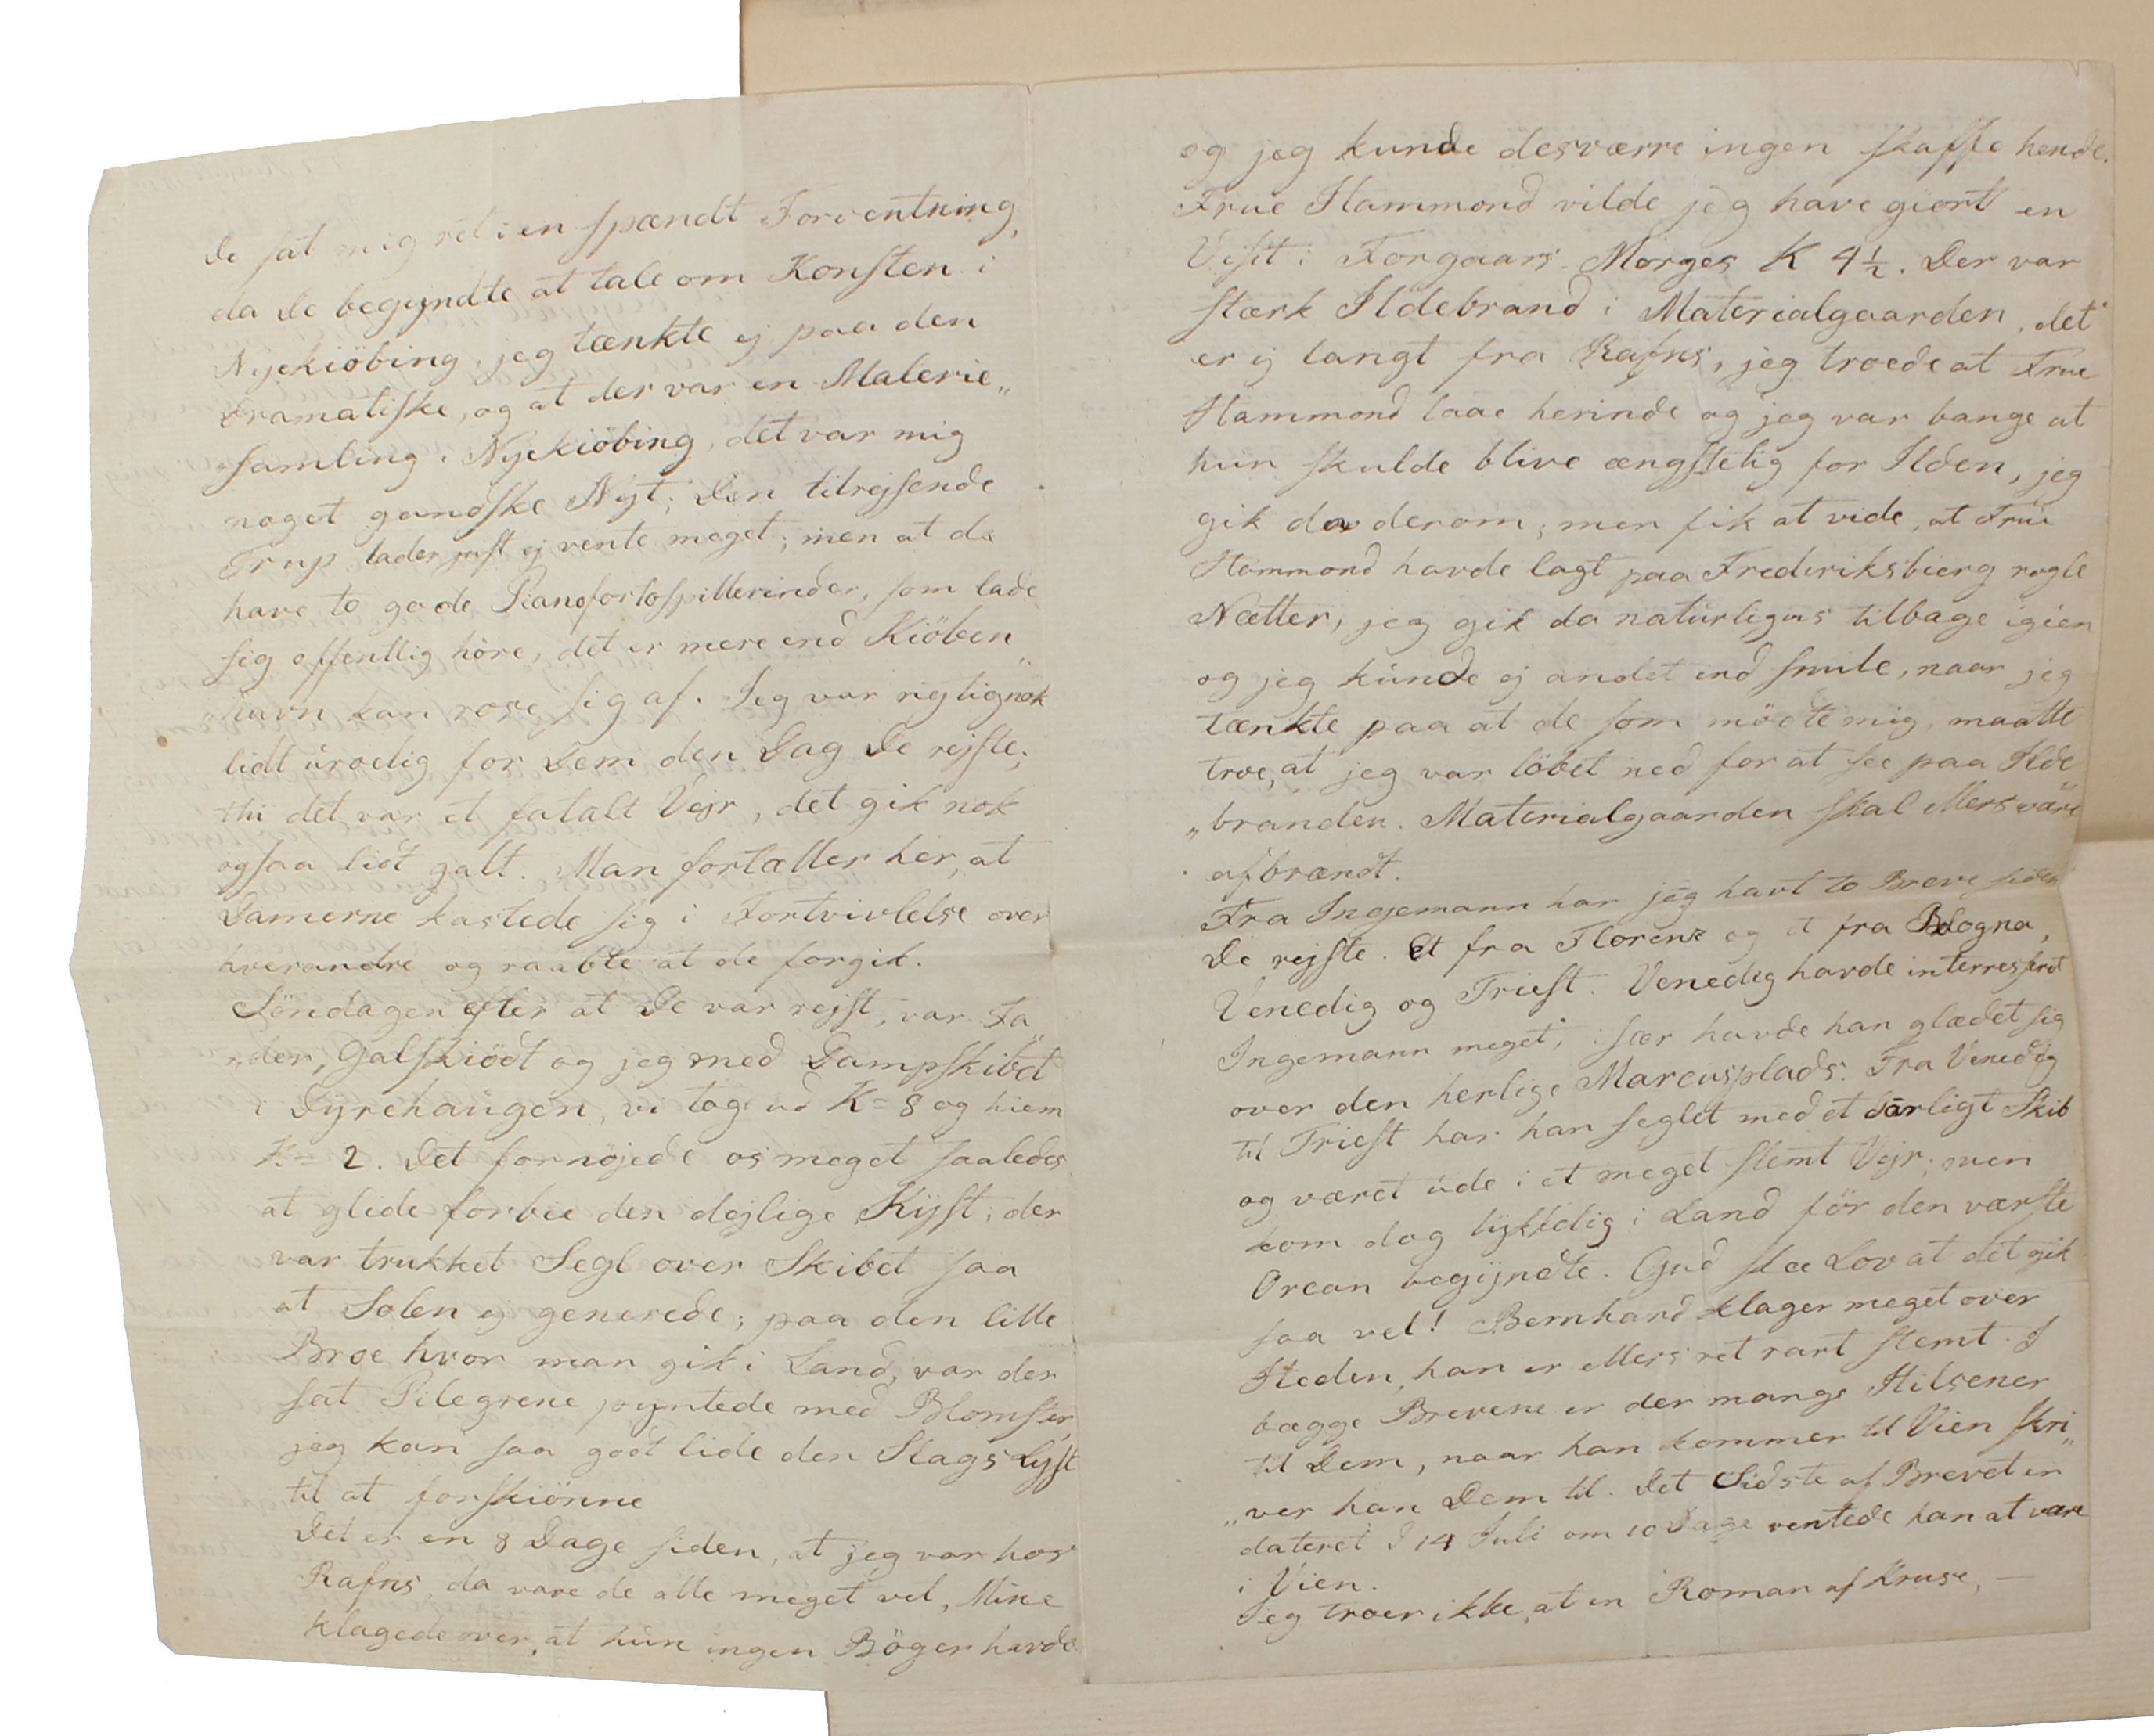 De sat mig ret i en spændt Forventning,
da De begyndte at tale om Konsten i
Nyekiöbing, jeg tænkte ej paa den
Dramatiske, og at der var en Malerie„
„samling i Nyekiöbing, det var mig
noget gandske Nyt; Den tilrejsende
Trup lader just ej vente meget; men at de
have to gode Pianofortospillerinder, som lade
sig offentlig höre, det er mere end Kiöben„
„havn kan rose sig af. Jeg var rigtignok
lidt uroelig for Dem den Dag De rejste;
thi det var et fatalt Vejr, det gik nok
ogsaa lidt galt. Man fortæller her, at
Damerne kastede sig i Fortvivlelse over
hverandre og raabte at de forgik.
Söndagen efter at De var rejst, var Fa„
„der, Galskiödt og jeg med Dampskibet
i Dyrehaugen, vi tog ud K= 8 og hiem
K= 2. Det fornøjede os meget saaledes
at glide forbie den dejlige Kyst; der
var trukket Segl over Skibet saa
at Solen ej generede; paa den lille
Broe hvor man gik i Land, var der
sat Pilegrene pyntede med Blomster,
jeg kan saa godt lide den Slags Lyst
til at forskiönne
Det er en 8 Dage siden, at jeg var hos
Rafns, da vare de alle meget vel, Mine
klagede over, at hun ingen Böger havde
og jeg kunde desværre ingen skaffe hende.
Frue Hammond vilde jeg have giort en
Visit i Forgaars Morges K 4½. Der var
stærk Ildebrand i Materialgaarden, det
er ej langt fra Rafns, jeg troede at Frue
Hammond laae herinde og jeg var bange at
hun skulde blive ængstelig for Ilden, jeg
gik da derom, men fik at vide, at Frue
Hammond havde lagt paa Frederiksbierg nogle
Nætter, jeg gik da naturligviis tilbage igien
og jeg kunde ej andet end smile, naar jeg
tænkte paa at de som mödte mig, maatte
troe, at jeg var löbet ned for at see paa Ilde„
„branden. Materialgaarden skal ellers være
afbrændt.
Fra Ingemann har jeg havt to Breve siden
De rejste. Et fra Florenz og et fra Bologna,
Venedig og Triest. Venedig havde interresseret
Ingemann meget, især havde han glædet sig
over den herlige Marcusplads. Fra Venedig
til Triest har han seglet med et daarligt Skib
og været ude i et meget slemt Vejr; men
kom dog lykkelig i Land för den værste
Orcan begyndte. Gud skee Lov at det gik
saa vel! Bernhard klager meget over
Heden, han er ellers ret rart stemt. I
bægge Brevene er der mange Hilsener
til Dem, naar han kommer til Vien skri„
„ver han Dem til. Det Sidste af Brevet er
dateret d 14 Juli om 10 Dage ventede han at være
i Vien.
Jeg troer ikke, at en Roman af Kruse, —